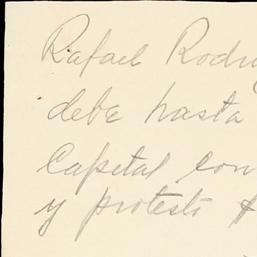 Rafael Rodrig
debe hasta
Capital con
y protesto